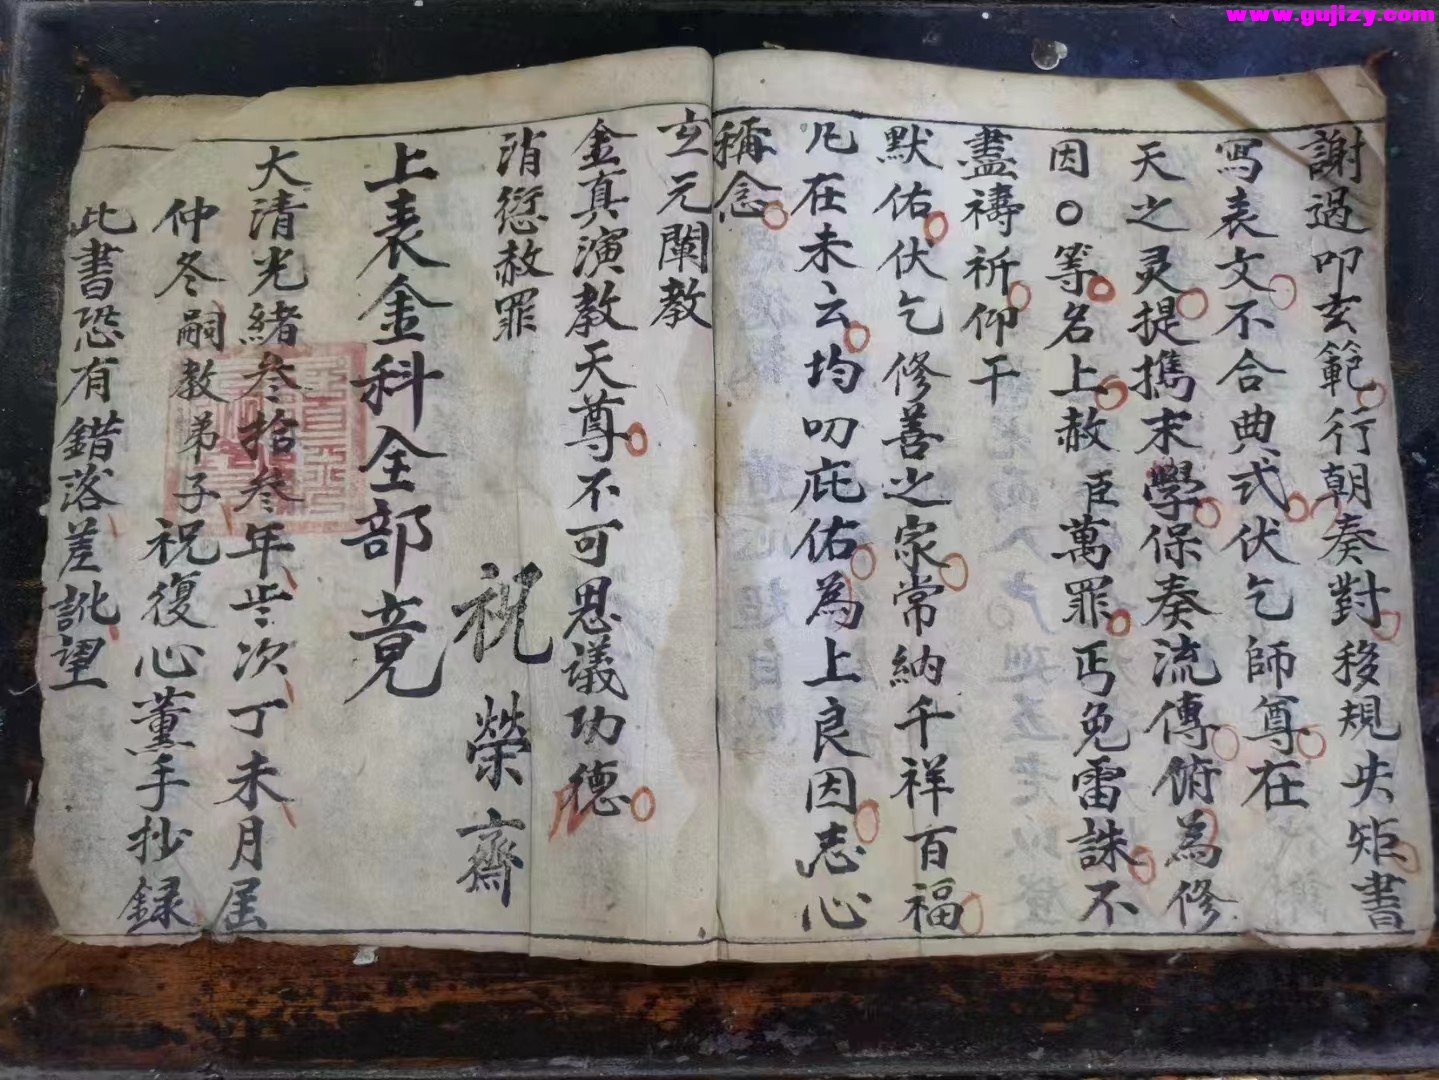 www.gujizy.com
謝過叩玄範行朝奏對移規失矩書
寫表文不合典式伏乞師尊在
天之灵提攜末學保奏流傳俯為修
因〇等名上赦臣萬罪丐免雷誅不
盡禱祈仰干
默佑伏乞修善之家常納千祥百福
凡在未云均叨庇佑為上良因志心
稱念
玄元闡教
金真演教天尊不可思議功德
消愆赦罪
祝榮齋
上表金科全部竟
大清光緒叁拾叁年歲次丁未月届
仲冬嗣教弟子祝復心薰手抄録
此書恐有錯落差訛望